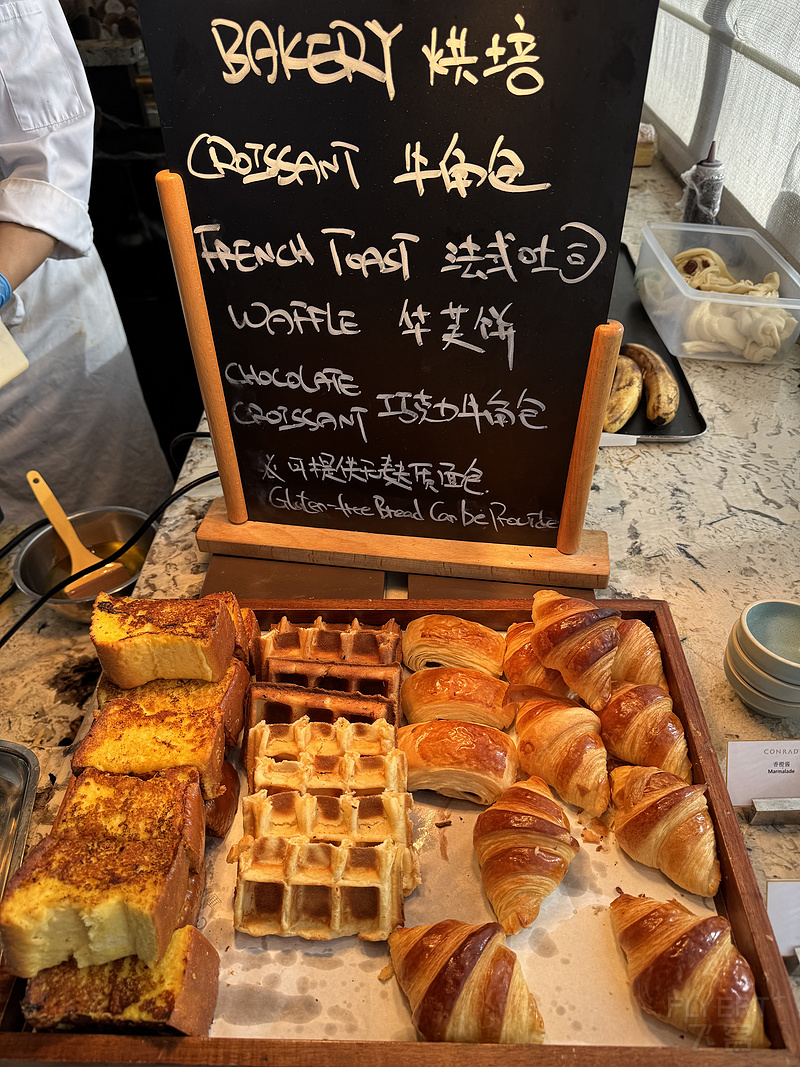 BAKERY 烘培
CROISSANT 牛角包
FRENCH TOAST 法式吐司
WAFFLE 华芙饼
CHOCOLATE
CROISSANT 巧克力牛角包
※可提供无麸质面包
Gluten-free Bread Can be Provide
CONRAD
香橙酱
Marmalade
FLYERT
飞客